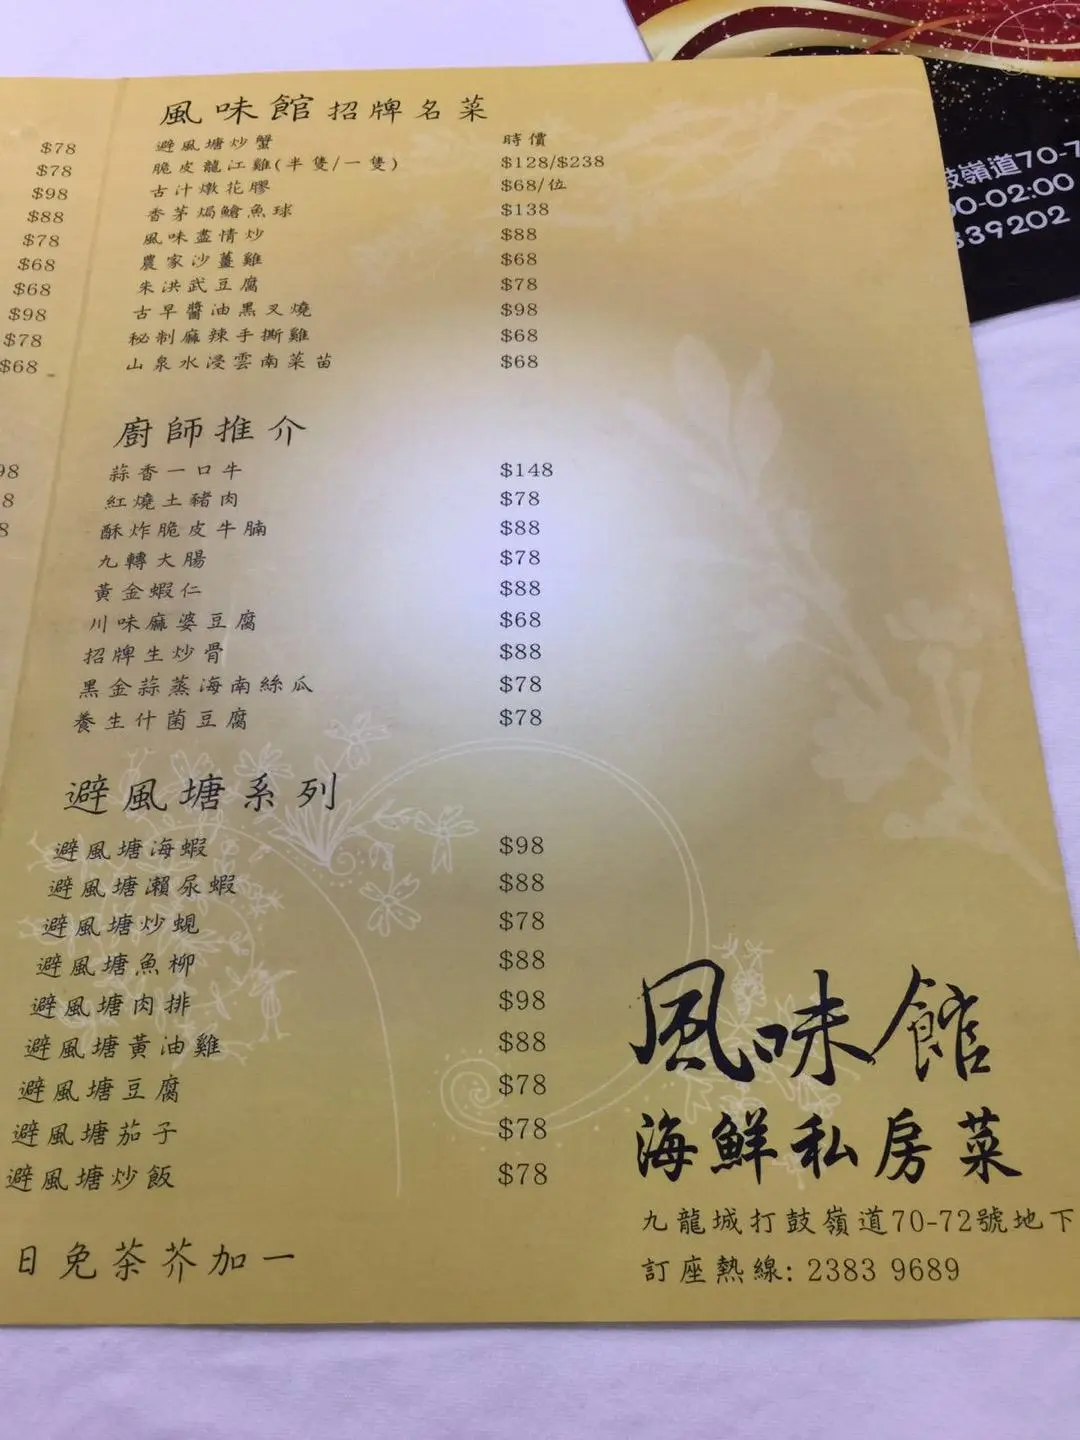 $78
$78
$98
$88
$78
$68
$68
$98
$78
$68
98
8
8
風味館招牌名菜
避風塘炒蟹 時價
脆皮龍江雞(半隻/一隻) $128/$238
古汁燉花膠 $68/位
香茅焗鱠魚球 $138
風味盡情炒 $88
農家沙薑雞 $68
朱洪武豆腐 $78
古早醬油黑叉燒 $98
秘制麻辣手撕雞 $68
山泉水浸雲南菜苗 $68
廚師推介
蒜香一口牛 $148
紅燒土豬肉 $78
酥炸脆皮牛腩 $88
九轉大腸 $78
黃金蝦仁 $88
川味麻婆豆腐 $68
招牌生炒骨 $88
黑金蒜蒸海南絲瓜 $78
養生什菌豆腐 $78
避風塘系列
避風塘海蝦 $98
避風塘瀨尿蝦 $88
避風塘炒蜆 $78
避風塘魚柳 $88
避風塘肉排 $98
避風塘黃油雞 $88
避風塘豆腐 $78
避風塘茄子 $78
避風塘炒飯 $78
日免茶芥加一
風味館
海鮮私房菜
九龍城打鼓嶺道70-72號地下
訂座熱線: 2383 9689
鼓嶺道70-7
00-02:00
839202